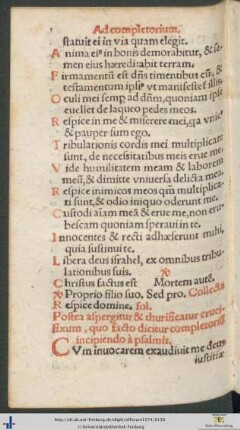 Ad completorium.
statuit ei in via quam elegit.
Anima eiꝰ in bonis demorabitur, & se-
men eius hæreditabit terram.
Firmamentũ est dñs timentibus eũ, &
testamentum ipsiꝰ vt manifestet illis.
Oculi mei semp ad dñm, quoniam ipse
euellet de laqueo pedes meos.
Respice in me & miserere mei, qa vnicꝰ
& pauper sum ego.
Tribulationes cordis mei multiplicatæ
sunt, de necessitatibus meis erue me.
Vide humilitatem meam & laborem
meũ, & dimitte vniuersa delicta mea.
Respice inimicos meos qm̃ multiplica-
ti sunt, & odio iniquo oderunt me.
Custodi aĩam meã & erue me, non eru-
bescam quoniam speraui in te.
Innocentes & recti adhæserunt mihi,
quia sustinui te.
Libera deus israhel, ex omnibus tribu-
lationibus suis.
Christus factus est Mortem autẽ.
Proprio filio suo. Sed pro. Collecta
Respice domine. fol.
Postea aspergitur & thurificatur cruci-
fixum, quo facto dicitur completorium
incipiendo à psalmis.
CVm inuocarem exaudiuit me deus
iustitiæ
© Universitätsbibliothek Freiburg